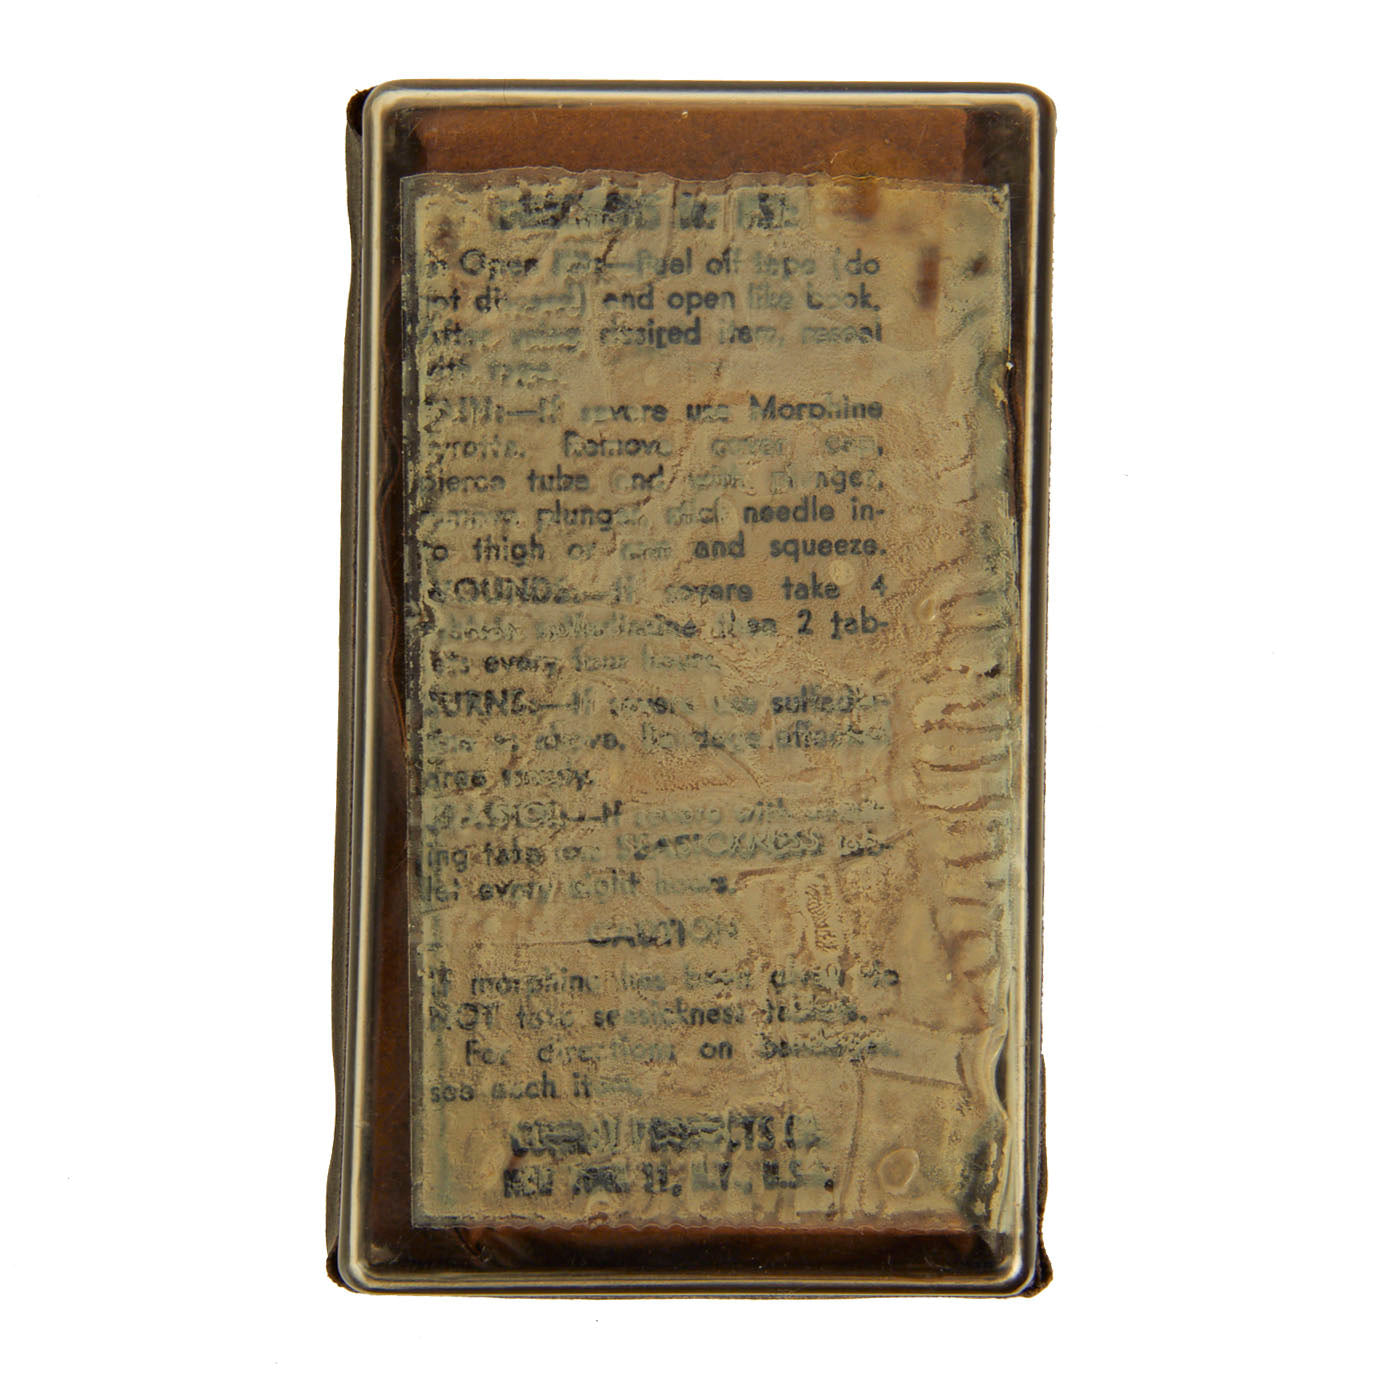 Open Kit:—Peel off tape (do
not discard) and open like book.
After using desired item, reseal
with tape.
PAIN:—If severe use Morphine
Syrette. Remove cover cap,
pierce tube end with plunger,
remove plunger, stick needle in-
to thigh or arm and squeeze.
WOUNDS:—If severe take 4
sulfadiazine then 2 tab-
lets every four hours.
BURNS:—If severe use sulfadia-
as above. Bandage affected
area
If severe with
ing take one SEASICKNESS tab-
let every eight hours.
CAUTION
If morphine has been given do
NOT take seasickness tablets.
For directions on bandages,
see each item.
NEW YORK N.Y., U.S.A.